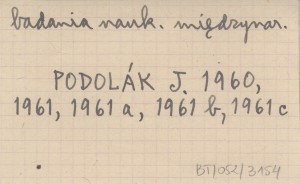 badania nauk. międzynar.
PODOLÁK J. 1960,
1961, 1961 a, 1961 b, 1961 c
BT/052/3154